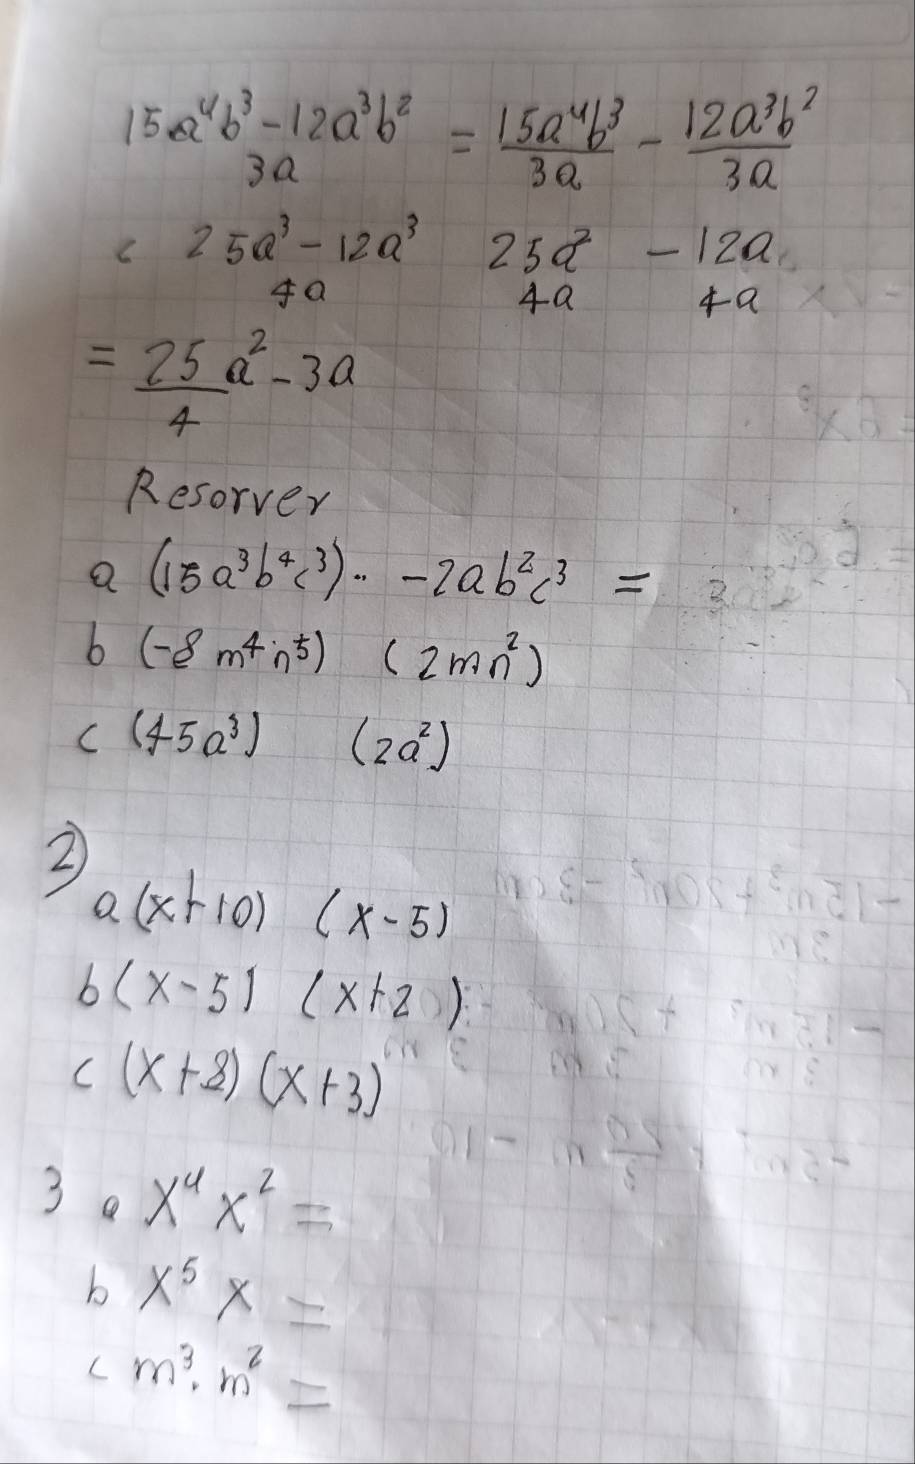 15a⁴b³ - 12a³b² = 15a⁴b³ - 12a³b²
3a 3a 3a
c 25a³ - 12a³ 25a² - 12a
4a 4a 4a
= 25 a² - 3a
4
Resorver
a (15a³b⁴c³) .. -2ab²c³ =
b (-8 m⁴n⁵) (2mn²)
c (45a³) (2a²)
2)
a (x+10) (x-5)
b (x-5) (x+2)
c (x+8) (x+3)
3 a x⁴ x² =
b x⁵ x =
c m³. m² =